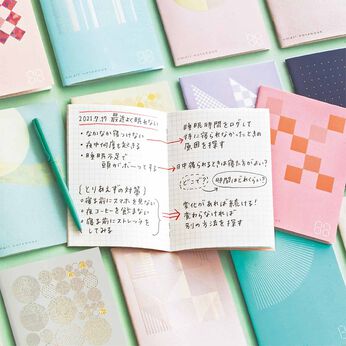 small notebook
2021.9.19 最近よく眠れない
・なかなか寝つけない
・夜中何度も起きる
・睡眠不足で
頭がボーッとする
[とりあえずの対策]
・寝る前にスマホを見ない
・夜コーヒーを飲まない
・寝る前にストレッチを
してみる
睡眠時間をログして
特に寝られなかったときの
原因を探す
日中寝られるときは寝た方がよい?
どこで?
時間はどれくらい?
変化があれば続ける!
変わらなければ
別の方法を探す